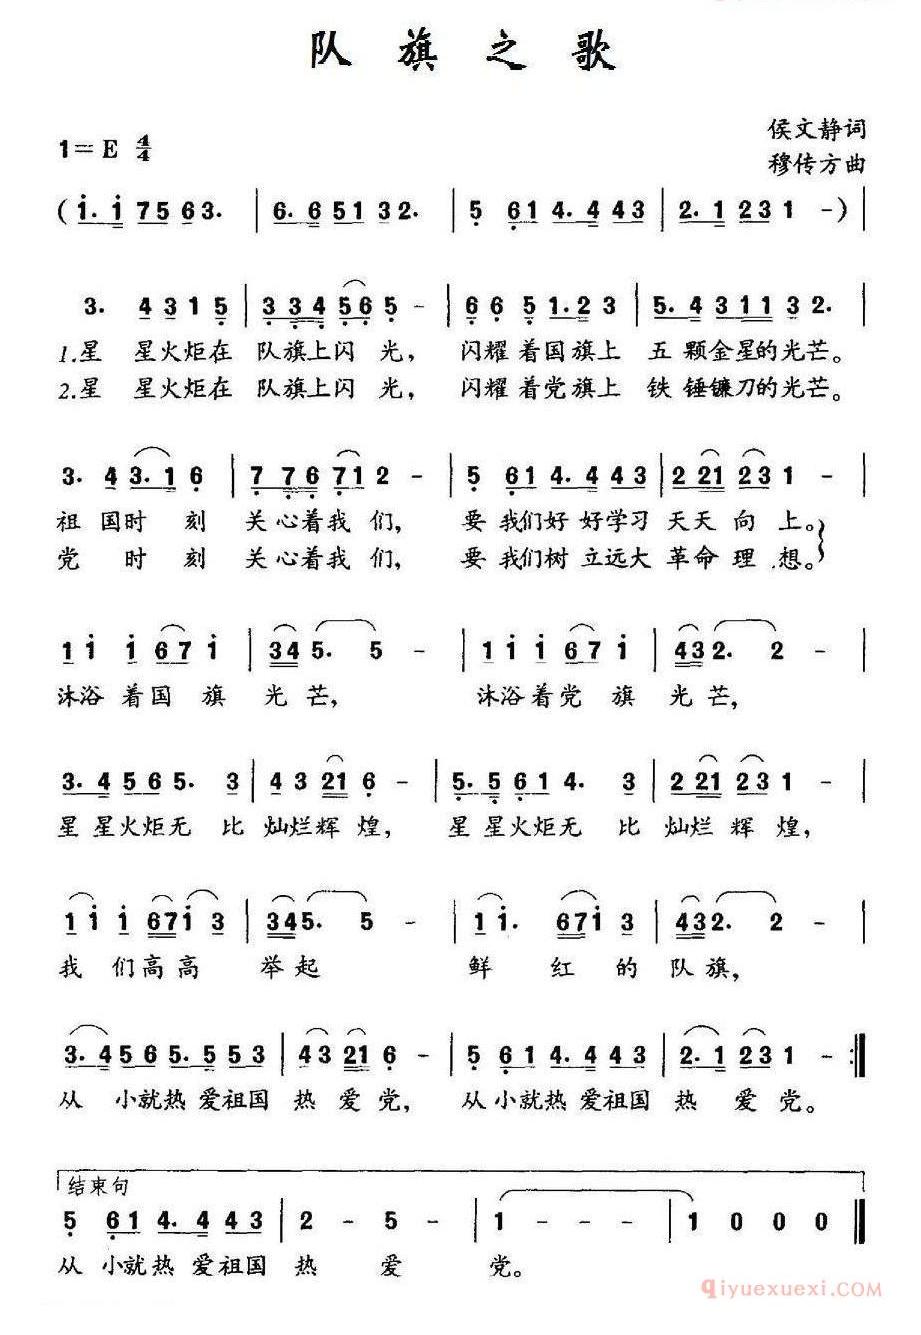 队旗之歌
侯文静词
1=E 4/4
穆传方曲
(1.1 7563. | 6.6 5132. | 5 61 4.4 443 | 2.1 231 -) |
3. 4315 | 3 34 565 - | 66 51.23 | 5.43113 2. |
1.星 星火炬在 队旗上闪 光, 闪耀着国旗上 五颗金星的光芒。
2.星 星火炬在 队旗上闪 光, 闪耀着党旗上 铁锤镰刀的光芒。
3. 43.16 | 7 76 712 - | 5 61 4.4 443 | 2 21 231 - |
祖国时刻 关心着我们, 要我们好好学习 天天向上。
党 时刻 关心着我们, 要我们树立远大 革命理想。
11 1671 | 345. 5 - | 111671 | 432. 2 - |
沐浴着国旗光芒, 沐浴着党旗光芒,
3.4 565. 3 | 43216 - | 5.5 614. 3 | 2 21 231 - |
星星火炬无比灿烂辉煌, 星星火炬无比灿烂辉煌,
11 16713 | 345. 5 - | 11. 6713 | 432. 2 - |
我们高高 举起 鲜红的队旗,
3.4565.5553 | 43216 - | 5 61 4.4 443 | 2.1 231 - :‖
从小就热爱祖国热爱党, 从小就热爱祖国热爱党。
结束句
5 61 4.4 443 | 2 - 5 - | 1 - - - | 1 0 0 0 ‖
从小就热爱祖国热 爱 党。
qiyuexuexi.com